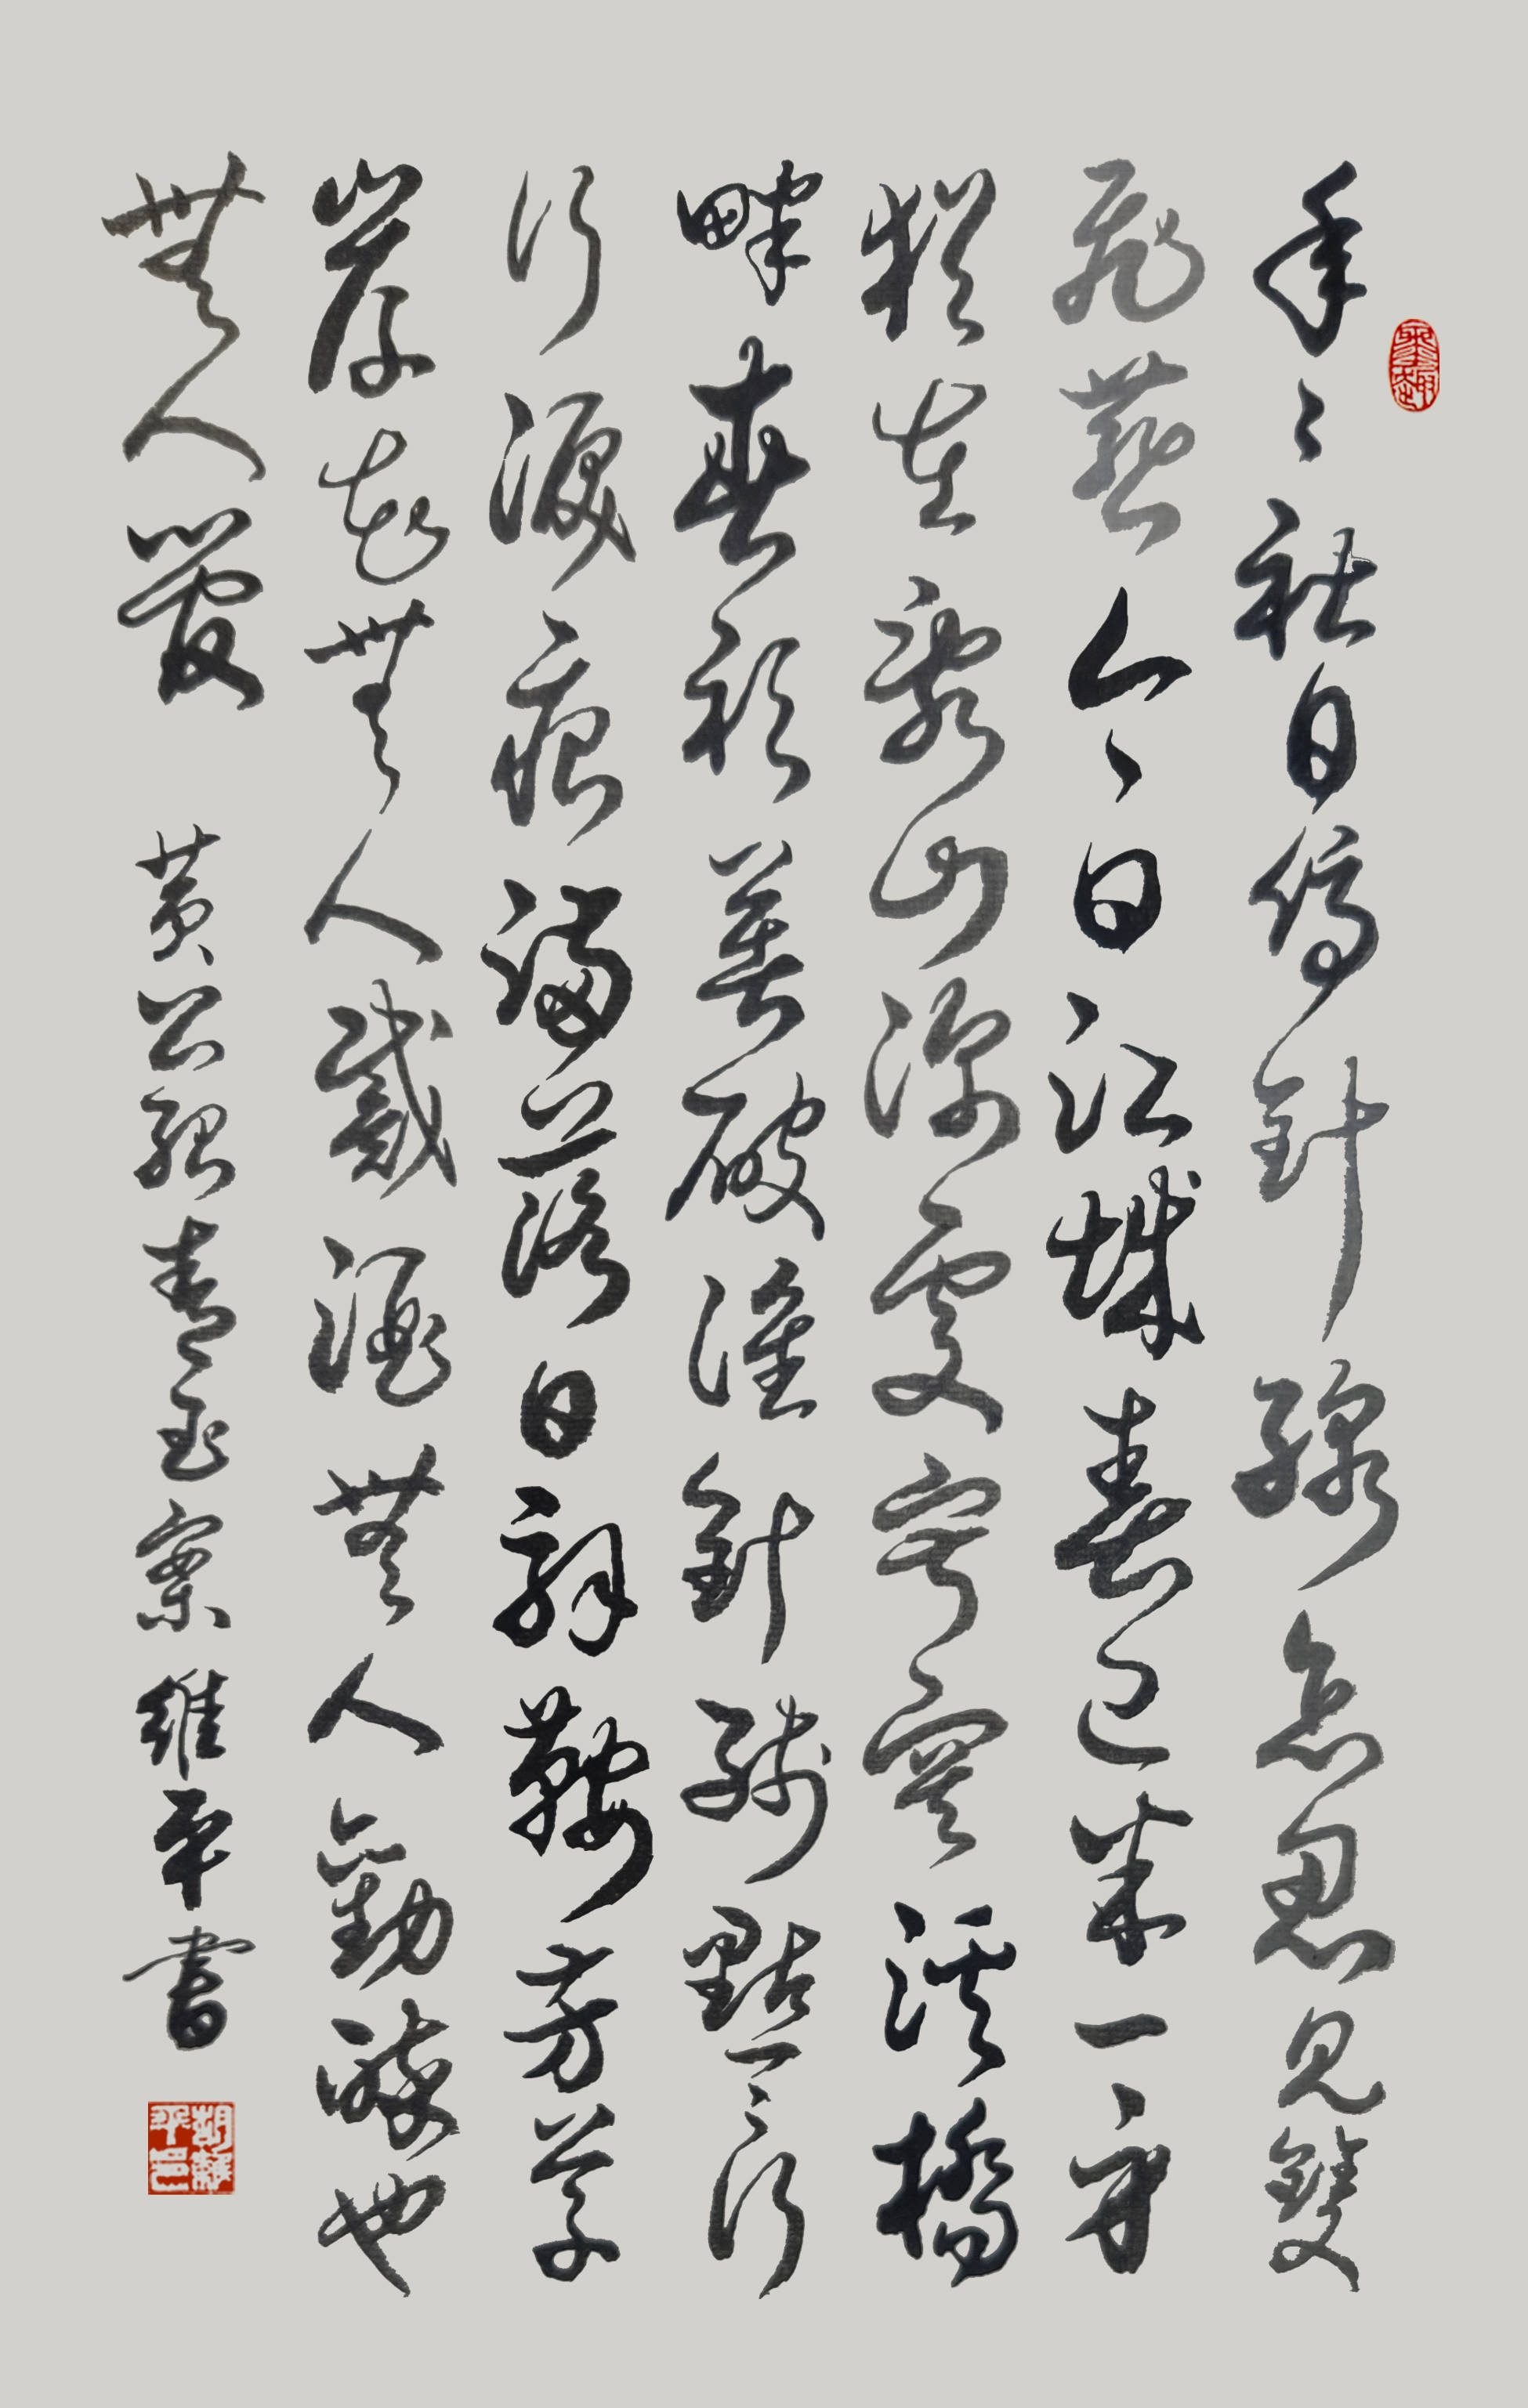 年々社日停針線怎忍見雙
飛燕今日江城春已半一身
猶在亂山深處寂寞溪橋
畔春衫著破誰針綫點々行
行淚痕滿落日解鞍芳草
岸花無人戴酒無人勸醉也
無人管 黃公紹青玉案 維平書
胡維平印